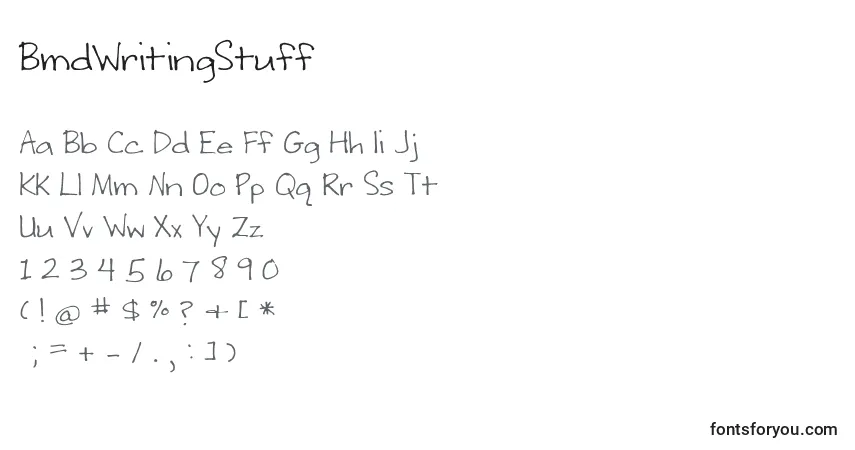 BmdWritingStuff
Aa Bb Cc Dd Ee Ff Gg Hh Ii Jj
KK Ll Mm Nn Oo Pp Qq Rr Ss Tt
Uu Vv Ww Xx Yy Zz
1 2 3 4 5 6 7 8 9 0
( ! @ # $ % ? + [ *
; = + - / . , : ] )
fontsforyou.com